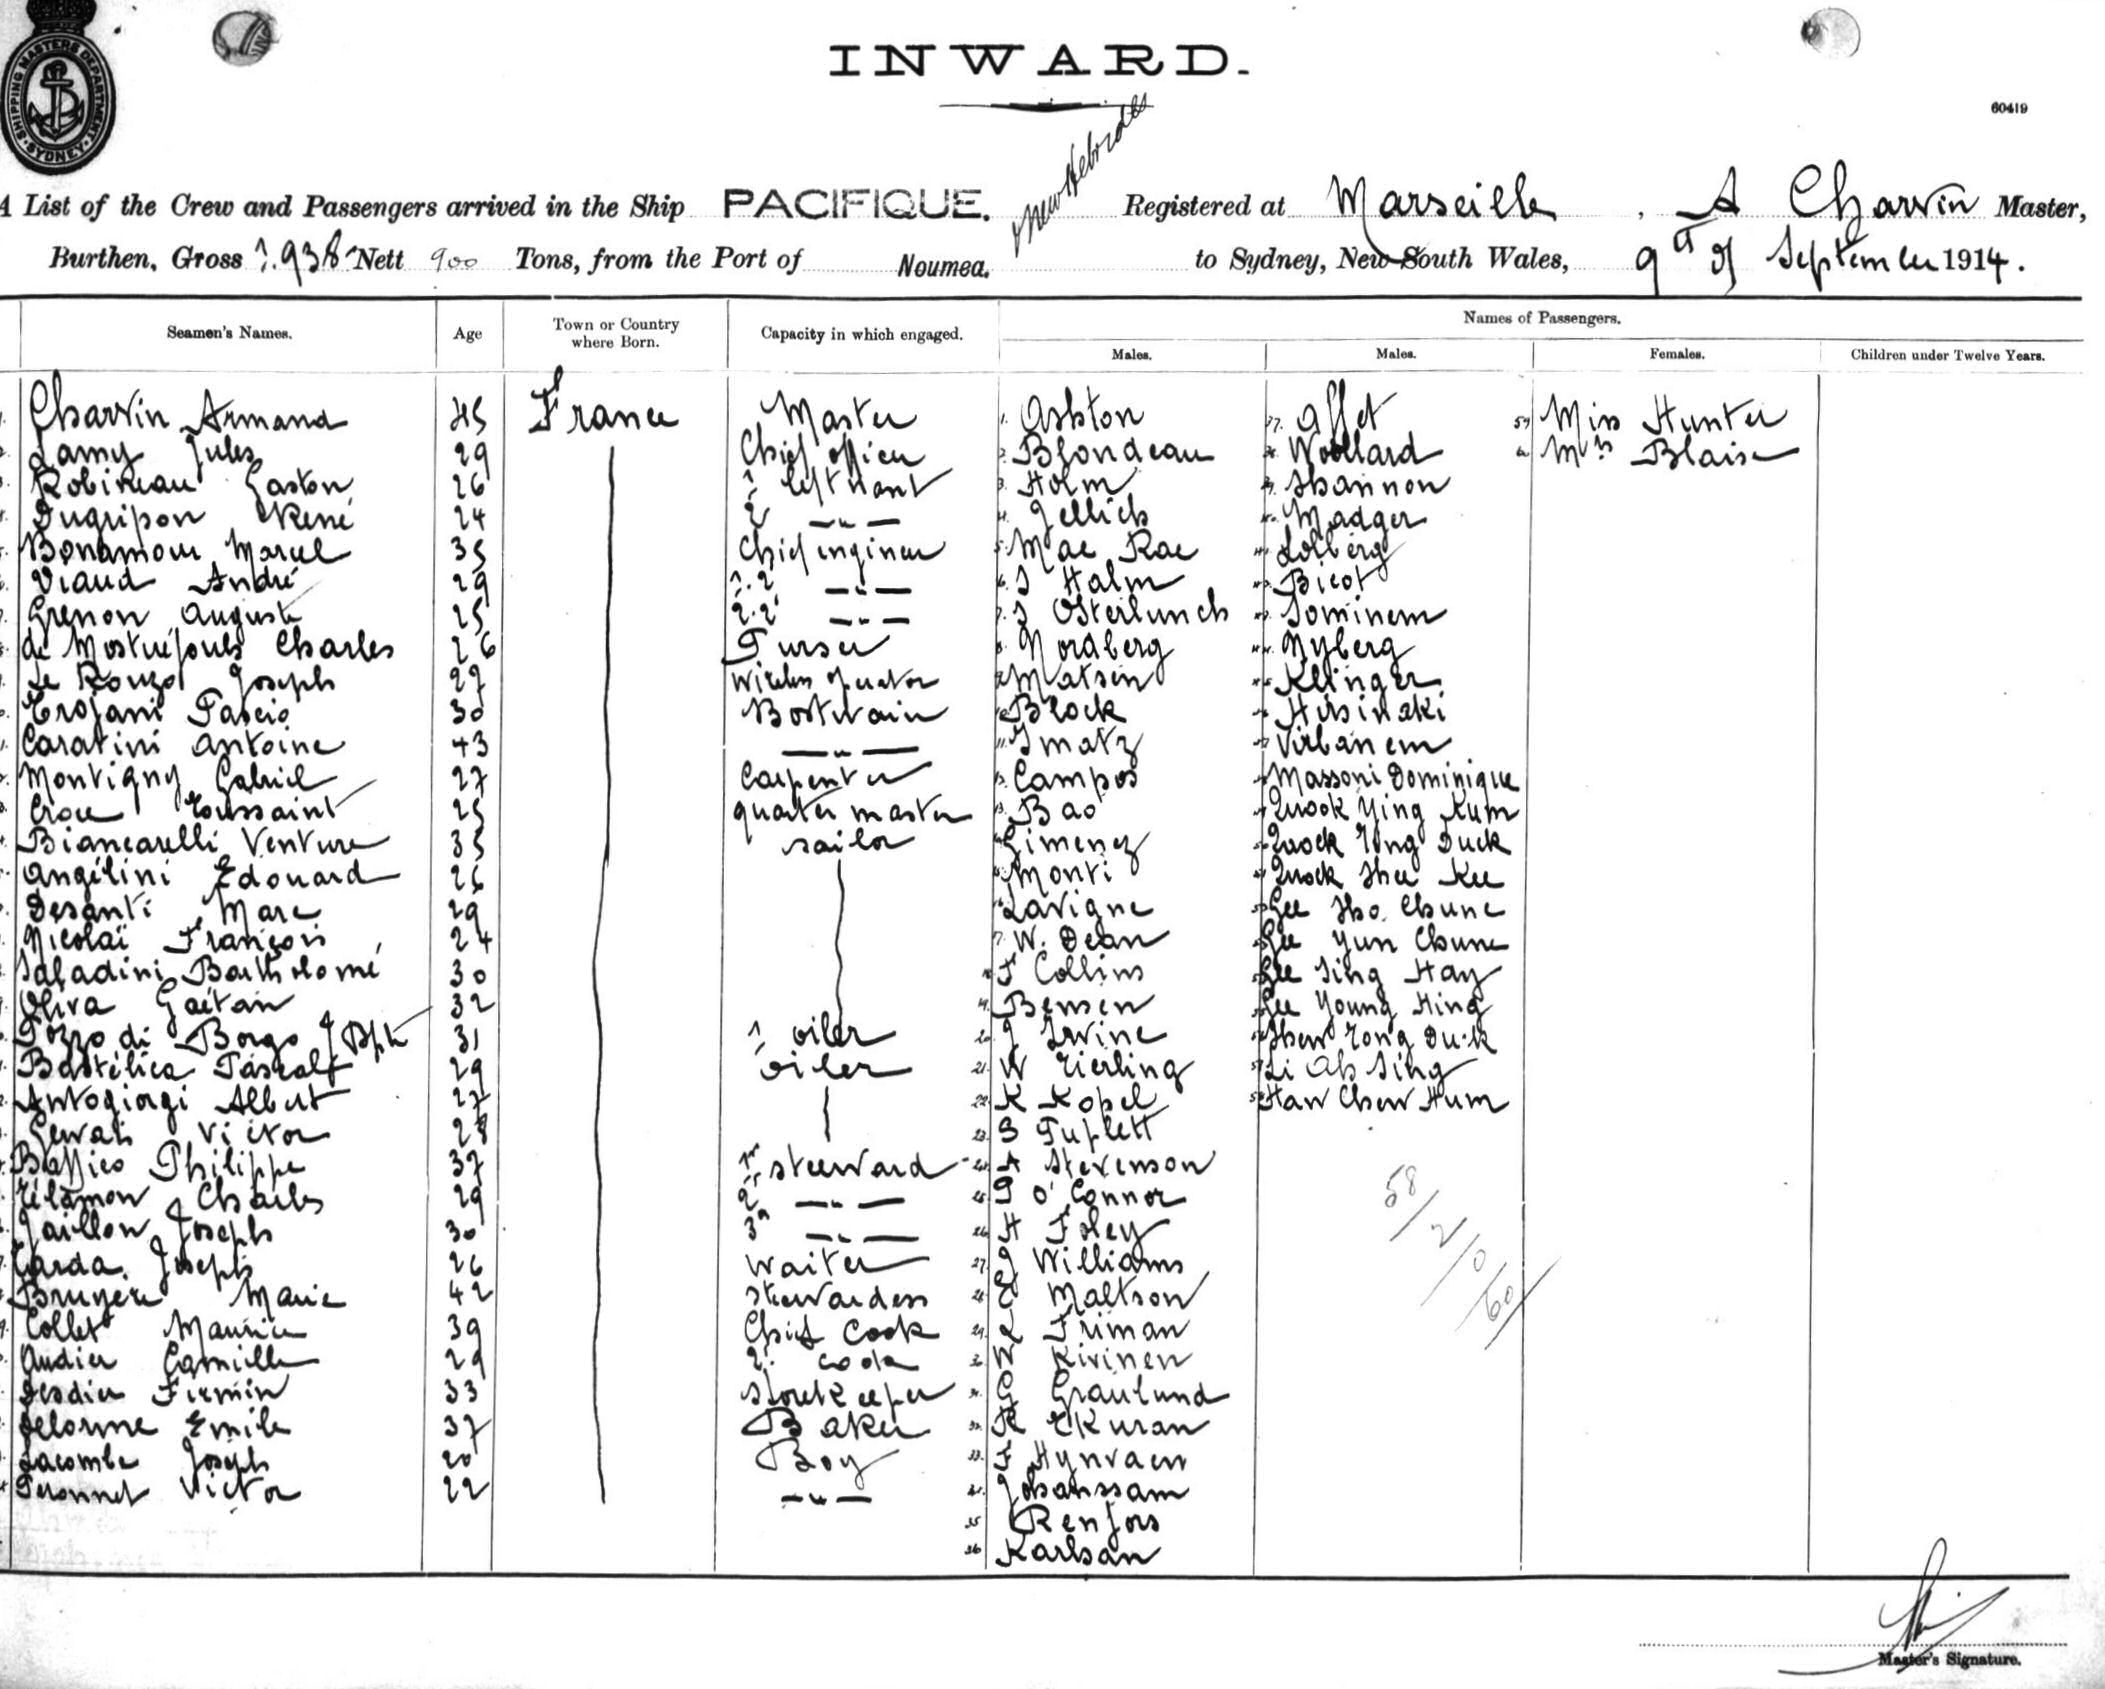 SHIPPING MASTERS DEPARTMENT
SYDNEY
INWARD.
60419
New Hebrides
A List of the Crew and Passengers arrived in the Ship PACIFIQUE. Registered at Marseille, A Charvin Master,
Burthen, Gross 1.938 Nett 900 Tons, from the Port of Noumea. to Sydney, New South Wales, 9th of September 1914.
Seamen's Names. Age Town or Country where Born. Capacity in which engaged. Names of Passengers.
Males. Males. Females. Children under Twelve Years.
Charvin Armand 45 France Master 1. Ashton 37. Affet 59 Miss Hunter
Lamy Jules 29 Chief officer 2. Blondeau 38. Woollard 60 Mrs Blaise
Robineau Gaston 26 1 leftnant 3. Holm 39. Shannon
Dugripon René 24 2 —"— 4. Jellich 40. Madger
Bonamour Marcel 35 Chief engineer 5. Mac Rae 41. Lolberg
Viaud André 29 1.2 —"— 6. J Halm 42. Bicot
Grenon Auguste 25 2.2 —"— 7. J Osterlunch 43. Tominem
de Mostuéjouls Charles 26 Purser 8. Nordberg 44. Nyberg
Le Rouzo Joseph 27 Wireless operator 9. Matsen 45. Klinger
Trojani Pascio 30 Bostwain 10. Block 46. Hirsinski
Caratini Antoine 43 —"— 11. Imatz 47. Virbanem
Montigny Gabriel 27 Carpenter 12. Campos 48. Massoni Dominique
Croce Toussaint 25 quarter master 13. Bao 49. Quock Ying Kum
Biancarelli Venture 35 sailor 14. Gimenez 50. Quock Yong Duck
Angélini Edouard 26 15. Monti 51. Quock Shee Kee
Desanti Marc 29 16. Lavigne 52. Gee Sho Chune
Nicolaï François 24 17. W. Dean 53. Gee Yun Chune
Saladini Bartholomé 30 18. F Collins 54. Gee Sing Hay
Oliva Gaétan 32 19. Bensen 55. Gee Young Hing
Pozzo di Borgo J Bpte 31 1 oiler 20. J Irvine 56. Shew Yong Duck
Bastélica Pascal 29 oiler 21. W Tierling 57. Li Ah Sing
Antogiorgi Albert 27 22. K Kopel 58. Haw Chew Hum
Gervais Victor 28 23. S Tuplett
Baffico Philippe 37 1r steward 24. A Stevenson
Télamon Charles 29 2r —"— 25. P O'Connor
Gaillon Joseph 30 3e —"— 26. H Foley
Carda Joseph 26 Waiter 27. J Williams
Bruyère Marie 42 Stewardess 28. E Maltson
Collet Maurice 39 Chief Cook 29. L Friman
Audier Camille 29 2. cook 30. W Kivinen
Desdier Firmin 33 Storekeeper 31. G Graulund
Delorme Emile 37 Baker 32. K Ekuran
Lacombe Joseph 20 Boy 33. F Hynvaen
Peronnet Victor 22 —"— 34. Johanssam
35 Renfors
36 Karlsan
58/2/0/60/
Master's Signature.